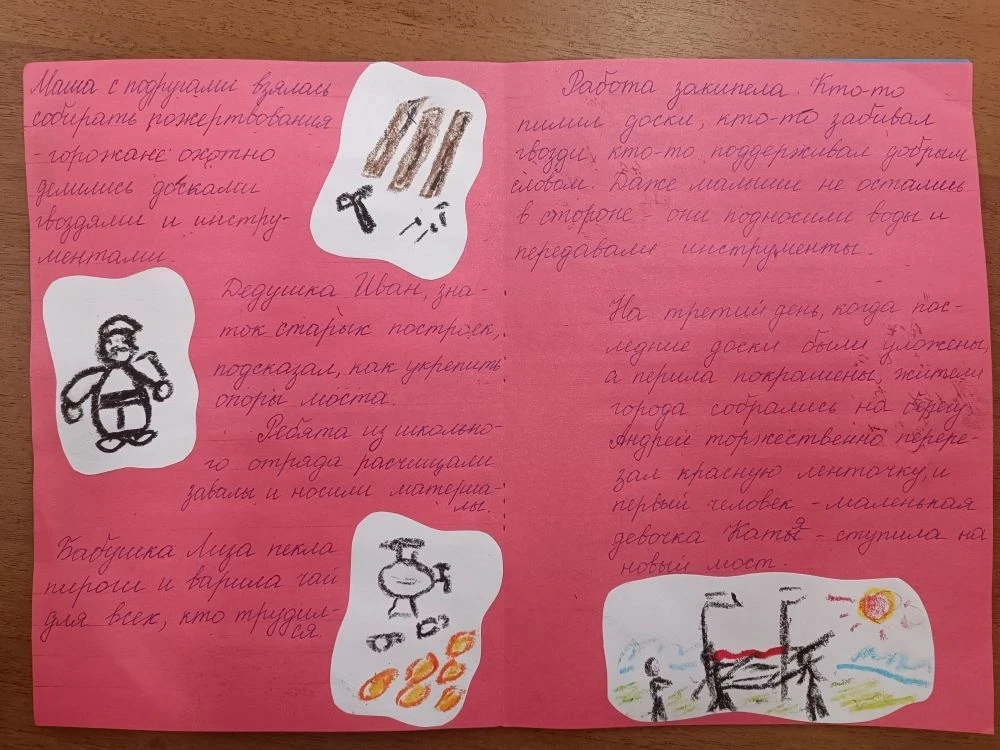 Маша с подругами взялась
собирать пожертвования
- горожане охотно
делились досками
гвоздями и инстру-
ментами.
Дедушка Иван, зна-
ток старых построек,
подсказал, как укрепить
опоры моста.
Ребята из школьно-
го отряда расчищали
завалы и носили материа-
лы.
Бабушка Лиза пекла
пироги и варила чай
для всех, кто трудил-
ся.
Работа закипела. Кто-то
пилил доски, кто-то забивал
гвозди, кто-то поддерживал добрым
словом. Даже малыши не остались
в стороне - они подносили воды и
передавали инструменты.
На третий день, когда пос-
ледние доски были уложены,
а перила покрашены, жители
города собрались на берегу.
Андрей торжественно перере-
зал красную ленточку, и
первый человек - маленькая
девочка Катя - ступила на
новый мост.